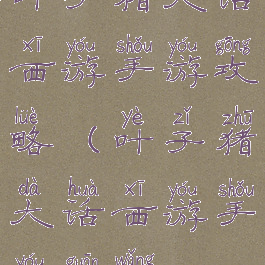 叶子猪大话
xī yóu shǒu yóu gōng
西游手游攻
lüè yè zǐ zhū
略（叶子猪
dà huà xī yóu shǒu
大话西游手
yóu guān wǎng